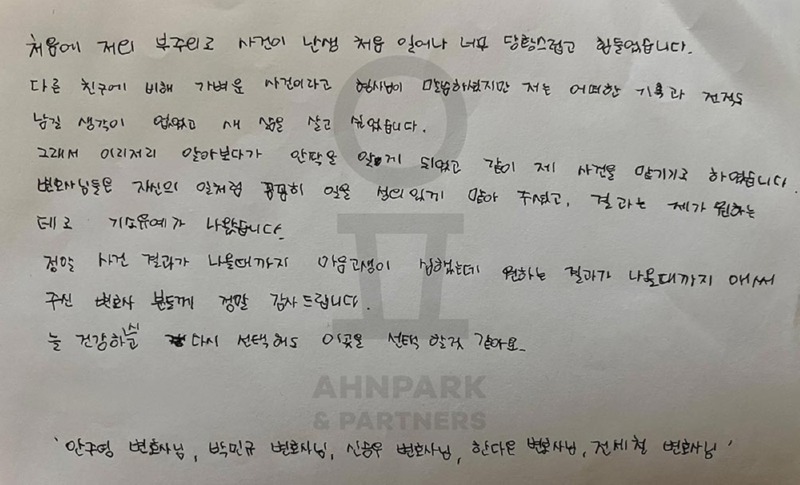 처음에 저의 부주의로 사건이 난생 처음 일어나 너무 당황스럽고 힘들었습니다.
다른 친구에 비해 가벼운 사건이라고 형사님이 말씀하셨지만 저는 어떠한 기록과 전적도
남길 생각이 없었고 새 삶을 살고 싶었습니다.
그래서 이리저리 알아보다가 안팍을 알게 되었고 같이 제 사건을 맡기기로 하였습니다
변호사님들은 자신의 일처럼 꼼꼼히 일을 성의있게 맡아 주셨고, 결과는 제가 원하는
데로 기소유예가 나왔습니다.
정말 사건 결과가 나올때까지 마음고생이 심했는데 원하는 결과가 나올때까지 애써
주신 변호사 분들께 정말 감사드립니다.
늘 건강하시고 다시 선택해도 이곳을 선택 할것 같아요.
AHNPARK
& PARTNERS
'안주영 변호사님, 박민규 변호사님, 신승우 변호사님, 한다은 변호사님, 전세철 변호사님'